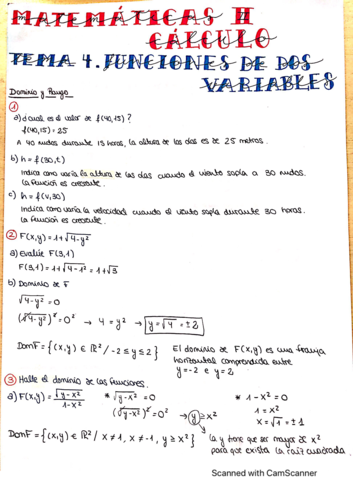 MATEMÁTICAS II
CÁLCULO
TEMA 4. FUNCIONES DE DOS
VARIABLES
Dominio y Rango
1
a) ¿cual es el valor de f(40,15)?
f(40,15) = 25
A 40 nudos durante 15 horas, la altura de las olas es de 25 metros.
b) h = f(30,t)
Indica como varía la altura de las olas cuando el viento sopla a 30 nudos.
La función es creciente.
c) h = f(v,30)
Indica como varía la velocidad cuando el viento sopla durante 30 horas.
La función es creciente.
2 F(x,y) = 1+√4-y²
a) Evalúe F(3,1)
F(3,1) = 1+√4-1² = 1+√3
b) Dominio de F
√4-y² = 0
(√4-y²)² = 0² → 4 = y² → y = √4 = ±2
Dom F = {(x,y) ∈ ℝ² / -2 ≤ y ≤ 2} El dominio de F(x,y) es una franja
horizontal comprendida entre
y = -2 e y = 2.
3 Halle el dominio de las funciones.
a) F(x,y) = √y-x² / 1-x² * √y-x² = 0 * 1-x² = 0
(√y-x²)² = 0² → y ≥ x² 1 = x²
x = √1 = ±1
Dom F = {(x,y) ∈ ℝ² / x ≠ 1, x ≠ -1, y ≥ x²} La y tiene que ser mayor de x²
para que exista la raíz cuadrada.
Scanned with CamScanner